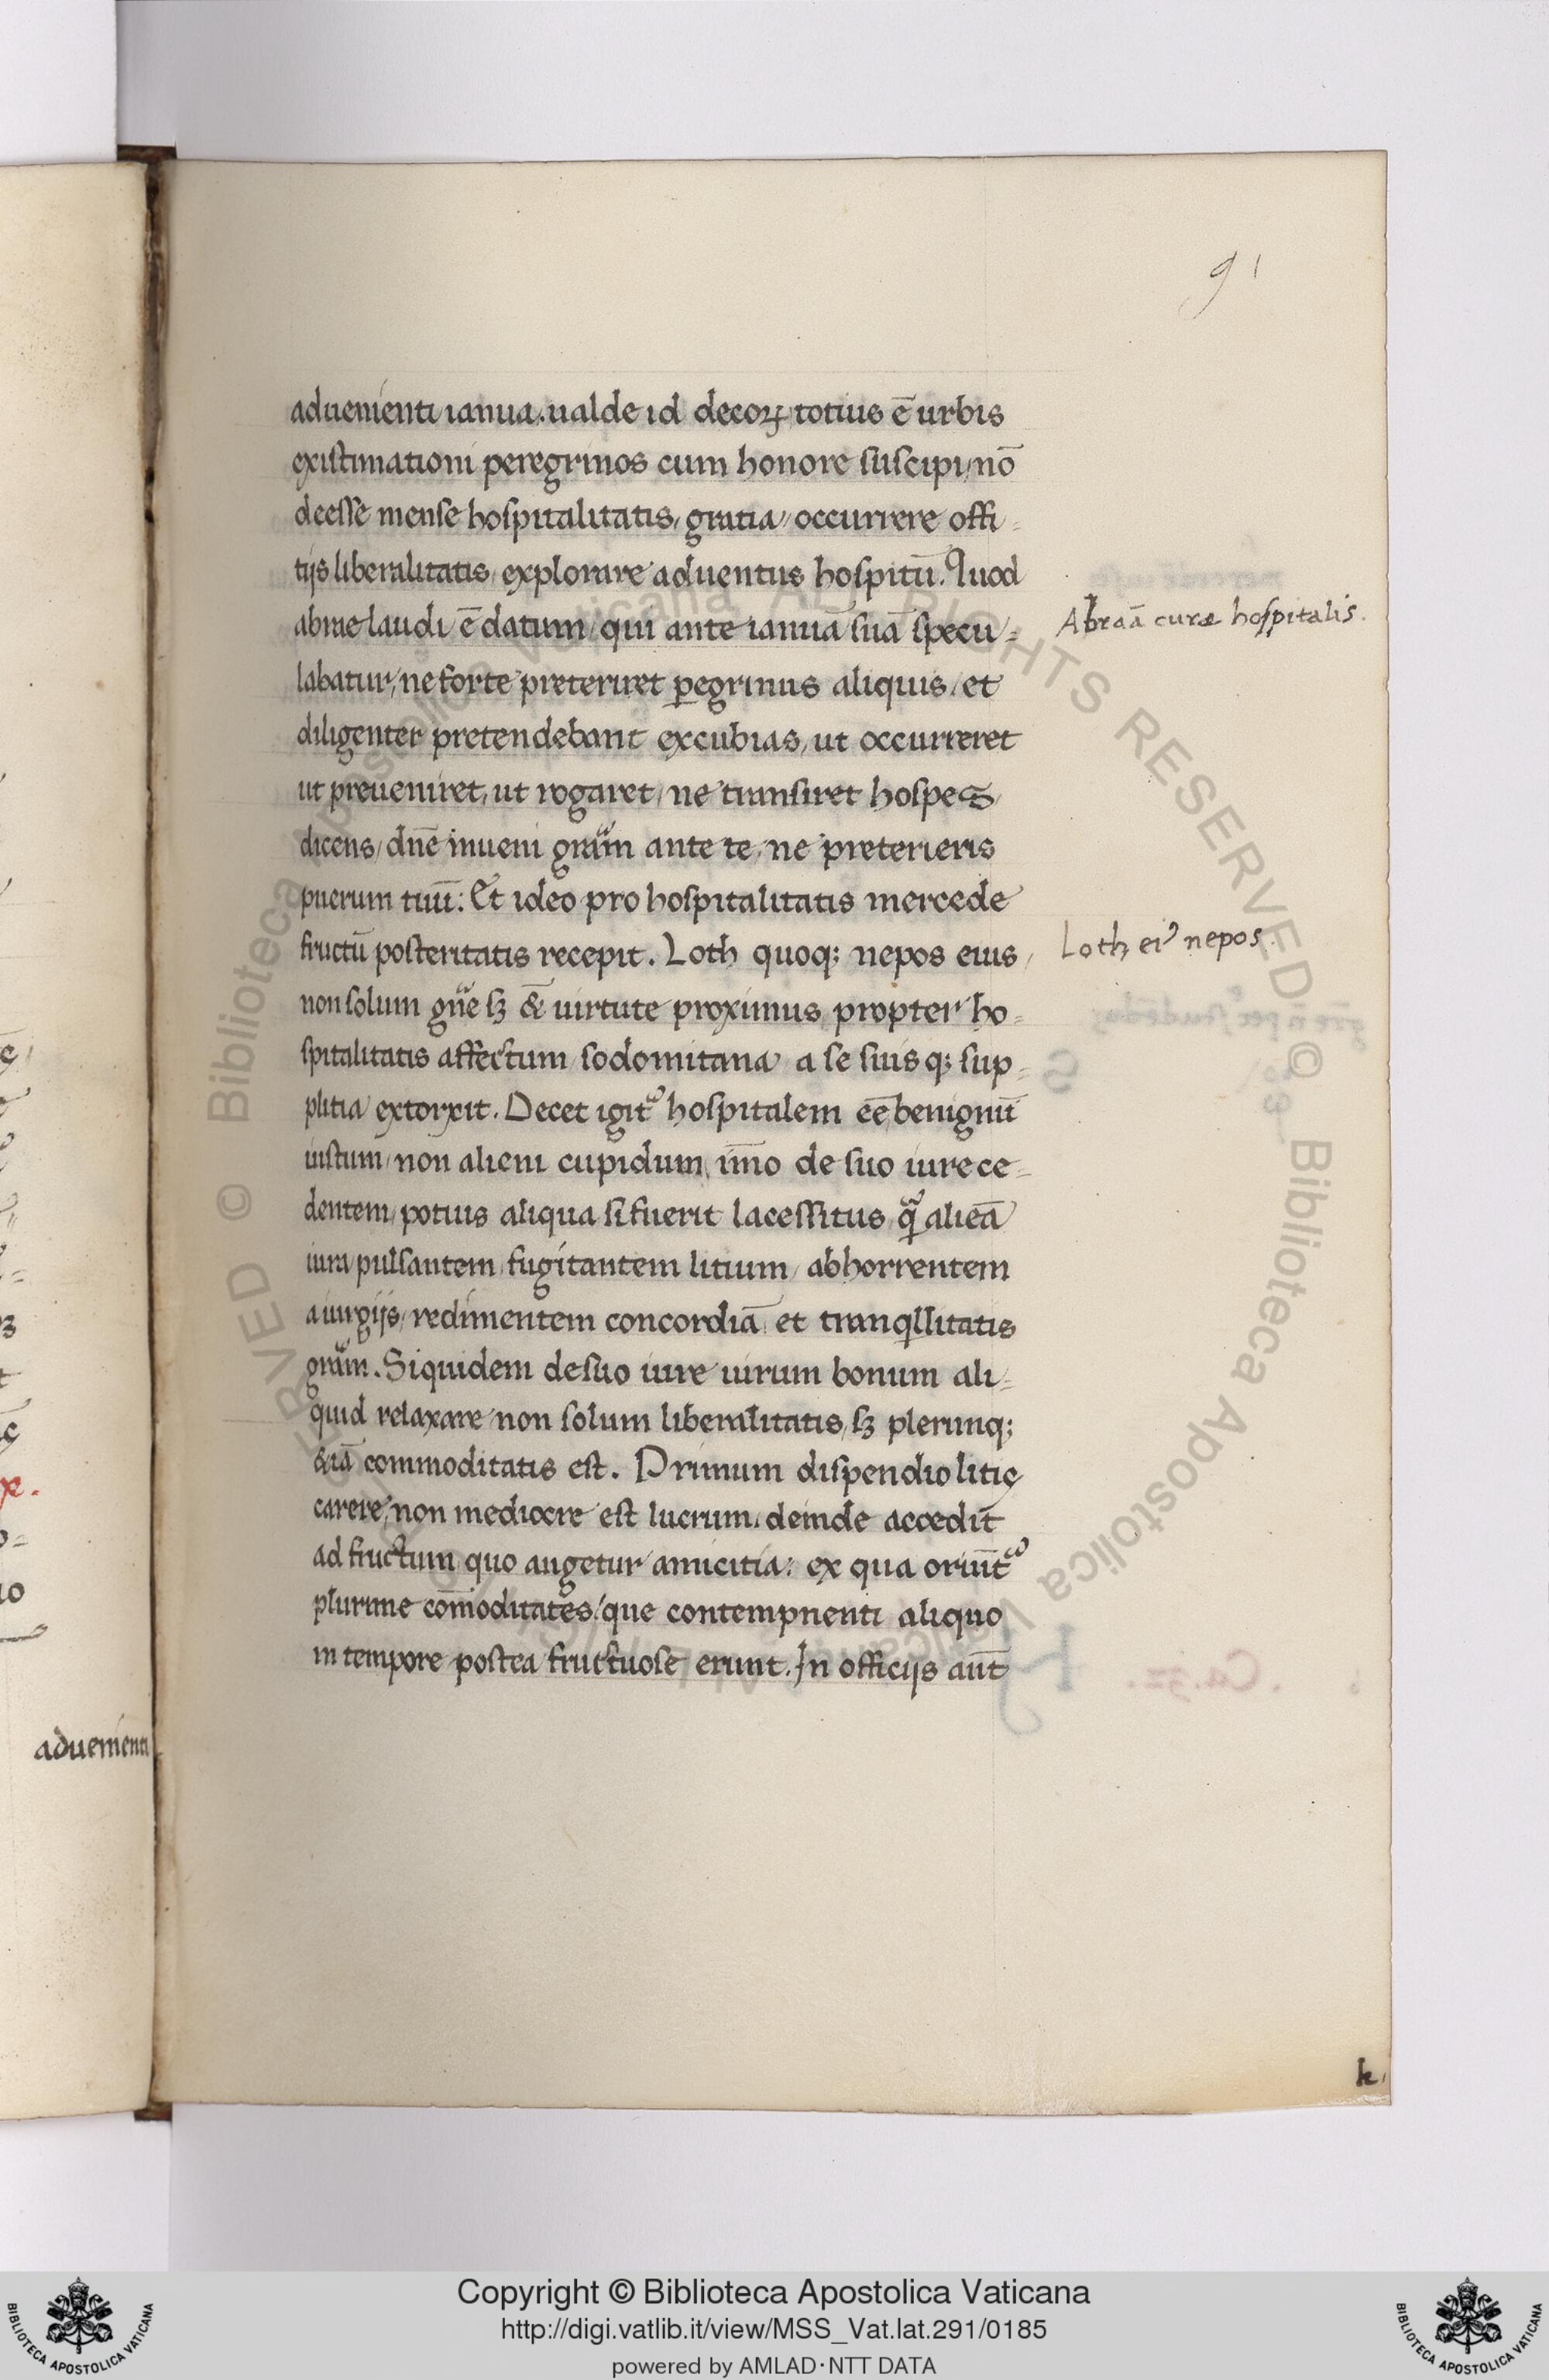 91
aduenienti ianua. ualde id decoꝝ totius ē urbis
existimationi peregrinos cum honore suscipi, nō
deesse mense hospitalitatis, gratia, occurrere offi-
tijs liberalitatis, explorare aduentus hospitū. Quod
abrae laudi ē datum, qui ante ianuā suā specu-
Abraā curæ hospitalis.
labatur, ne forte preteriret ꝑegrinus aliquis, et
diligenter pretendebant excubias, ut occurreret
ut preueniret, ut rogaret, ne transiret hospes,
dicens, dñe inueni grãm ante te, ne preterieris
puerum tuū: Et ideo pro hospitalitatis mercede
fructū posteritatis recepit. Loth quoq; nepos eius,
Loth eiꝰ nepos.
non solum gñe sꝫ & uirtute proximus, propter ho-
spitalitatis affectum sodomitana a se suisq; sup-
plitia extorxit. Decet igit᷑ hospitalem eē benignū
iustum, non alieni cupidum, īmo de suo iure ce-
dentem, potius aliqua si fuerit lacessitus, ꝙ̃ alieā
iura pulsantem, fugitantem litium, abhorrentem
a iurgijs, redimentem concordiā et tranqillitatis
grãm. Siquidem de suo iure uirum bonum ali-
quid relaxare non solum liberalitatis, sꝫ plerunq;
&iā commoditatis est. Primum dispendio litis
carere, non mediocre est lucrum, deinde accedit
ad fructum quo augetur amicitia: ex qua oriūt᷑
plurime cōmoditates, que contempnenti aliquo
in tempore postea fructuose erunt. In officijs aūt
aduenienti
k
Copyright © Biblioteca Apostolica Vaticana
http://digi.vatlib.it/view/MSS_Vat.lat.291/0185
powered by AMLAD·NTT DATA
BIBLIOTECA APOSTOLICA VATICANA
BIBLIOTECA APOSTOLICA VATICANA